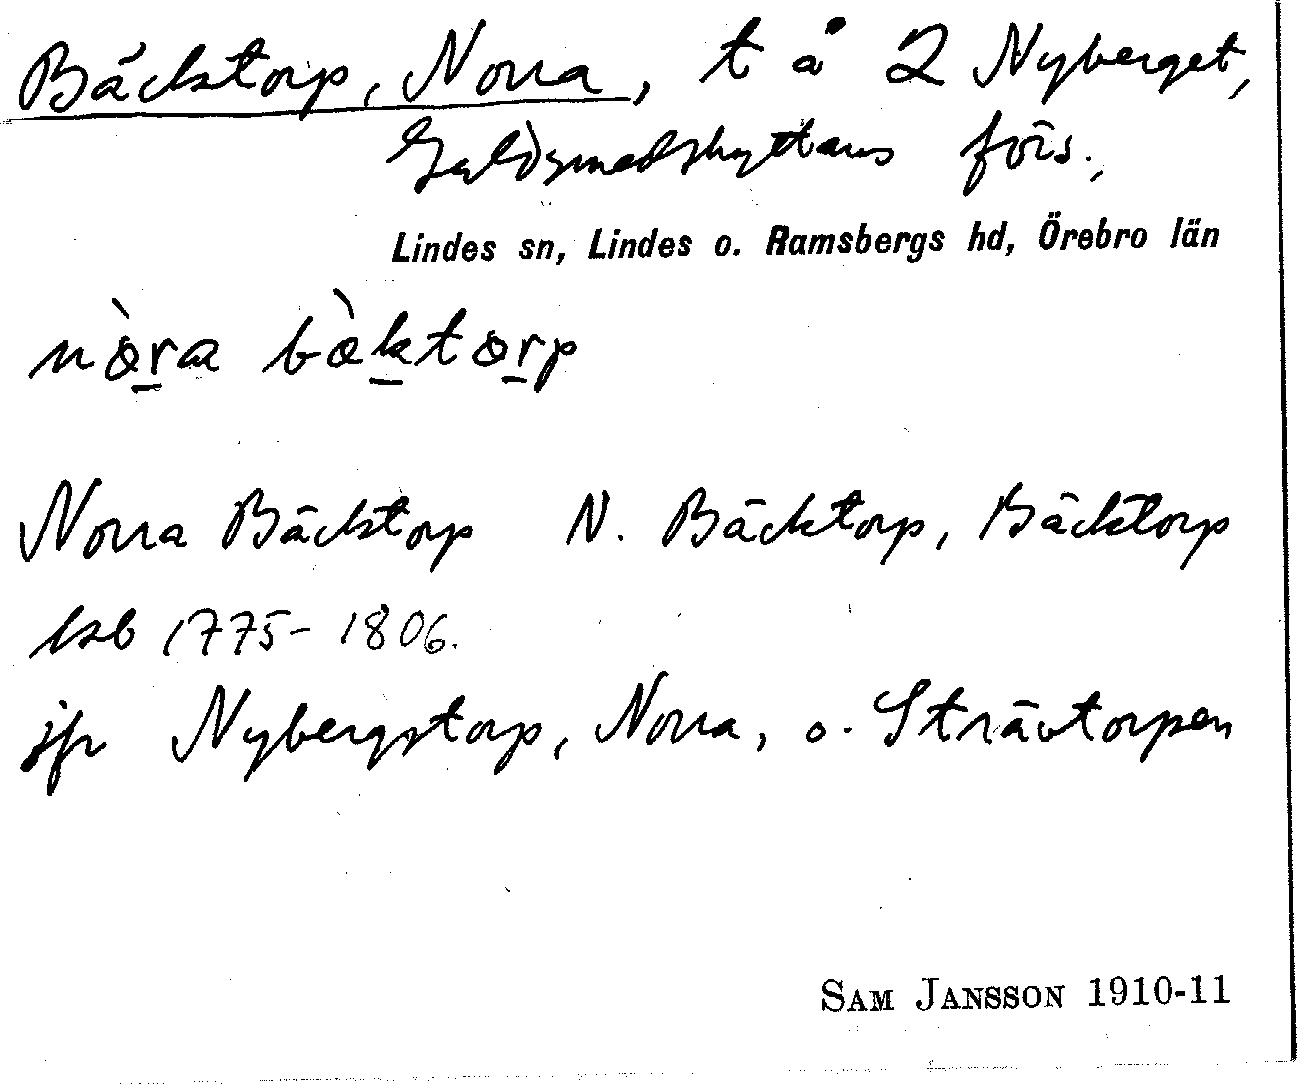 Bäcktorp, Norra, t å 2 Nyberget,
Guldsmedshyttans förs.,
Lindes sn, Lindes o. Ramsbergs hd, Örebro län
nòra bæ̀ktorp
Norra Bäcktorp N. Bäcktorp, Bäcktorp
ksb 1775-1806.
jfr Nybergstorp, Norra, o. Strävtorpen
SAM JANSSON 1910-11